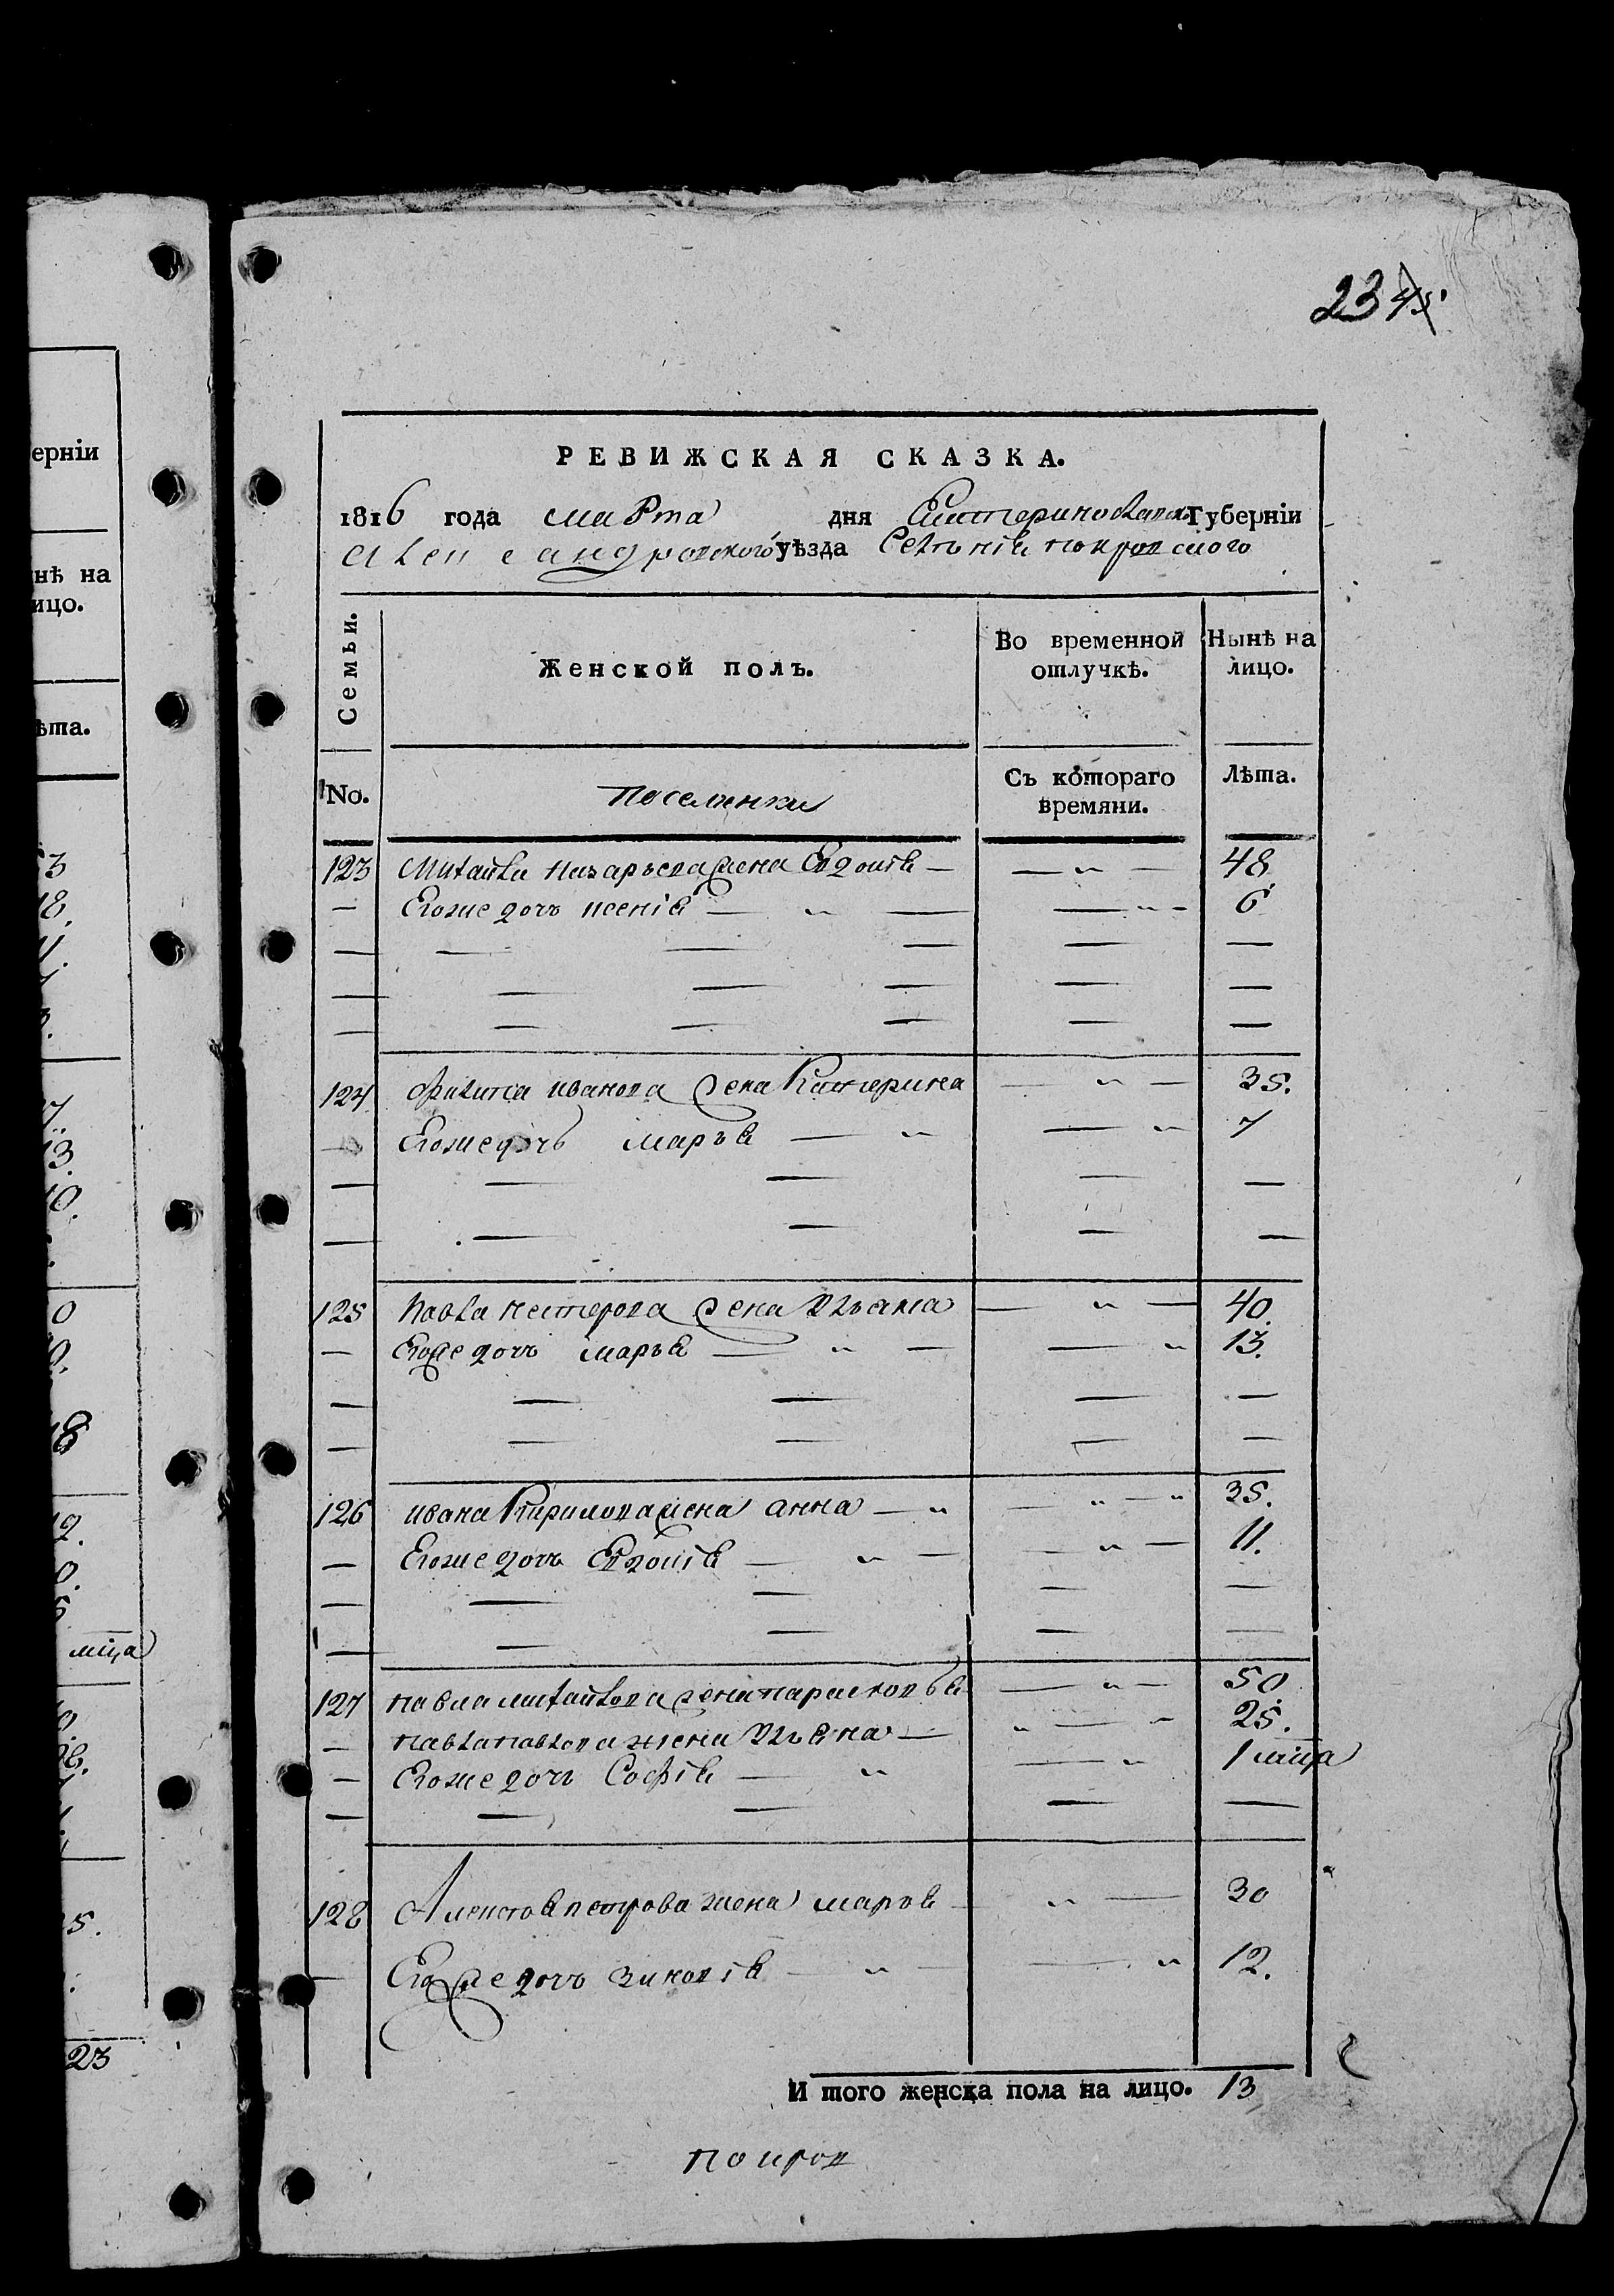 ерніи
нѣ на
ицо.
ѣта.
53
18.
7.
13.
10.
0
18
12.
мца
25.
23
23 45
РЕВИЖСКАЯ СКАЗКА.
1816 года марта дня Екатериновская Губерніи
Александровского уѣзда Селенія покровского
Семьи.
Женской полъ.
Во временной отлучкѣ.
Нынѣ на лицо.
No.
поселенки
Съ котораго времяни.
Лѣта.
123 Михайла назарьева жена Евдокія — — „ — 48
— Егоже дочь ксенія — „ — — „ — 6
124 Филипа иванова жена Катерина — „ — 35.
— Егоже дочь марья — „ — „ 7
125 павла нестерова жена ульяна — „ — 40.
— Егоже дочь марья — „ — — „ 13.
126 ивана Кирилова жена анна — „ — „ — „ 35.
— Егоже дочь Евдокія — „ — — „ — 11.
127 павла михайлова жена парасковья — „ — 50
— павла павлова жена ульяна — „ — „ 25.
— Егоже дочь Софія — „ — „ 1 мца
128 Алексея петрова жена марья — „ — 30
— Егоже дочь зиновія — „ — — „ 12.
И того женска пола на лицо. 13
покров